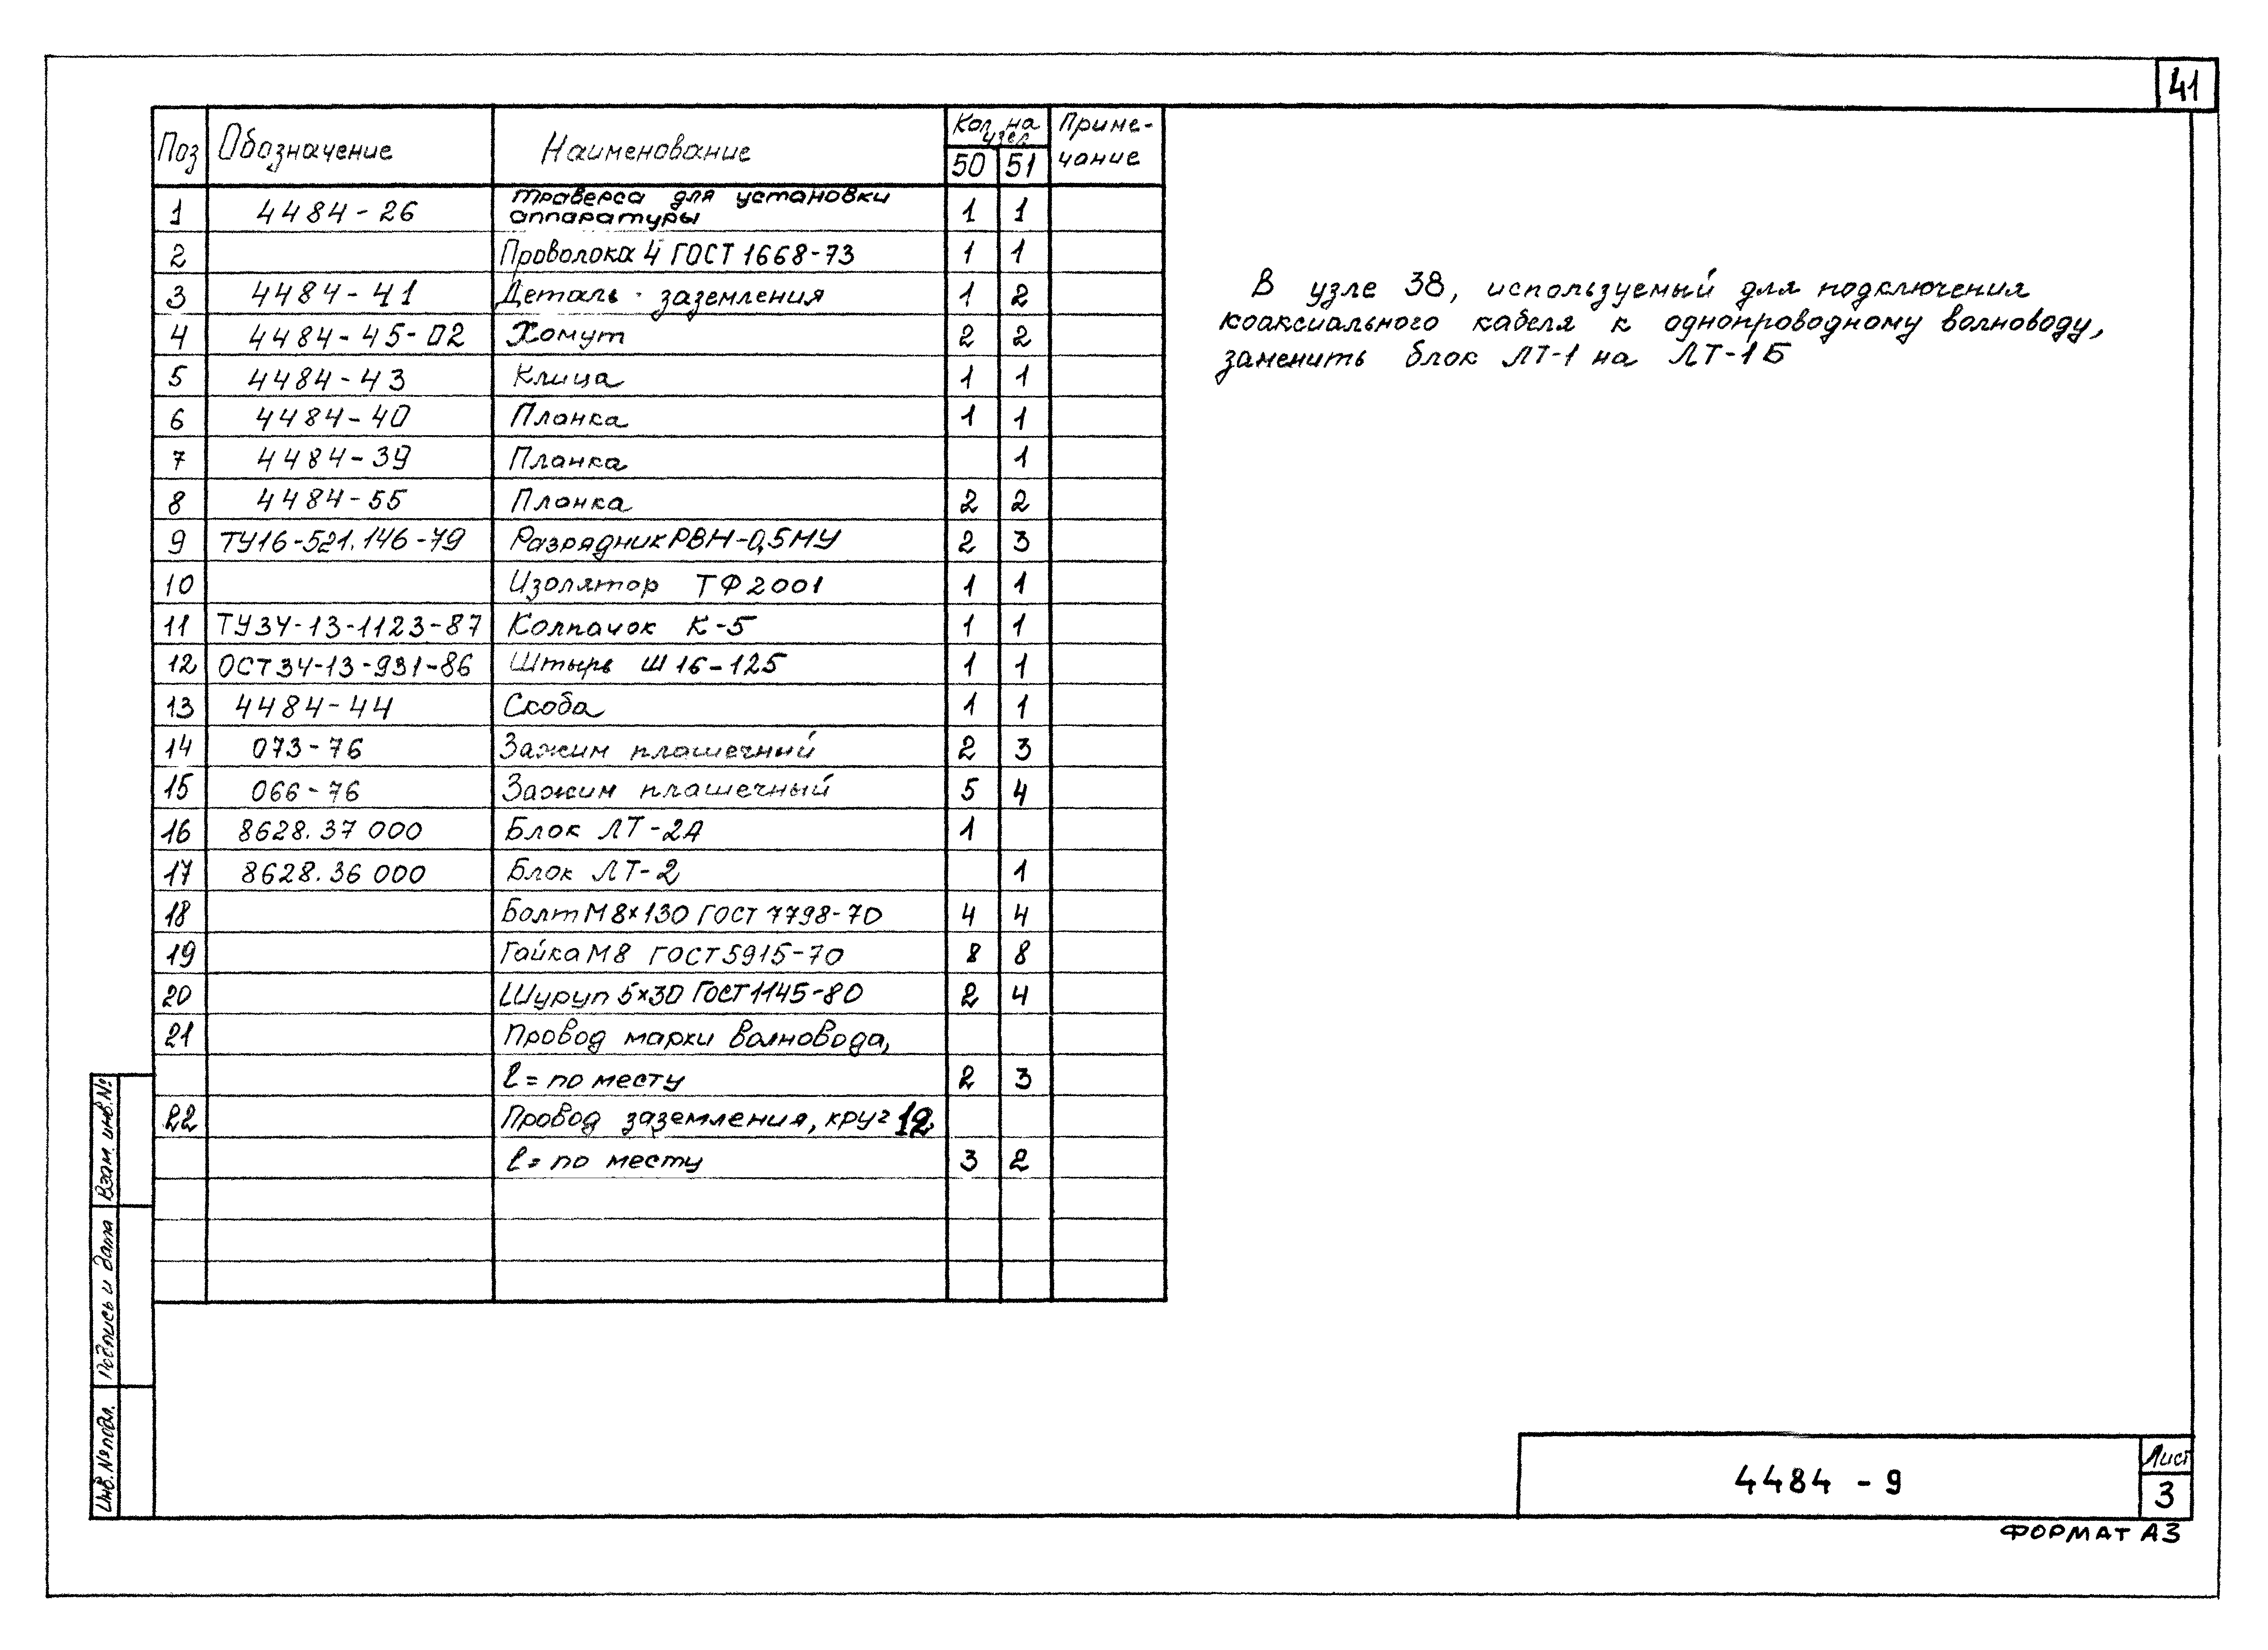 41
Поз Обозначение Наименование Кол. на узел Приме-
50 51 чание
1 4484-26 Траверса для установки
аппаратуры 1 1
2 Проволока 4 ГОСТ 1668-73 1 1
3 4484-41 Деталь заземления 1 2
4 4484-45-02 Хомут 2 2
5 4484-43 Клица 1 1
6 4484-40 Планка 1 1
7 4484-39 Планка 1
8 4484-55 Планка 2 2
9 ТУ16-521.146-79 Разрядник РВН-0,5МУ 2 3
10 Изолятор ТФ2001 1 1
11 ТУ34-13-1123-87 Колпачок К-5 1 1
12 ОСТ34-13-931-86 Штырь Ш16-125 1 1
13 4484-44 Скоба 1 1
14 073-76 Зажим плашечный 2 3
15 066-76 Зажим плашечный 5 4
16 8628.37 000 Блок ЛТ-2А 1
17 8628.36 000 Блок ЛТ-2 1
18 Болт М8×130 ГОСТ 7798-70 4 4
19 Гайка М8 ГОСТ 5915-70 8 8
20 Шуруп 5×30 ГОСТ 1145-80 2 4
21 Провод марки волновода,
ℓ= по месту 2 3
22 Провод заземления, круг 12
ℓ= по месту 3 2
В узле 38, используемый для подключения
коаксиального кабеля к однопроводному волноводу,
заменить блок ЛТ-1 на ЛТ-1Б
Взам. инв.№
Подпись и дата
Инв.№ подл.
4484 - 9
Лист
3
ФОРМАТ А3